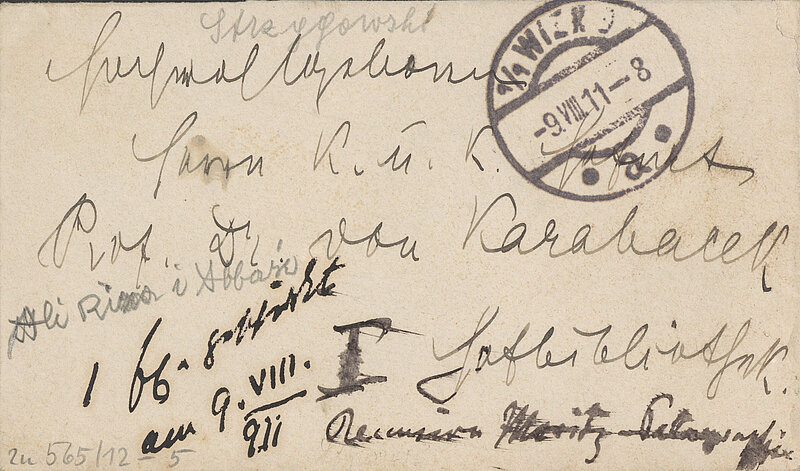 Strzygowski
Hochwohlgeboren
9/1 WIEN
-9.VIII.11-8
Herrn K. u. K. Hofrat
Prof. Dr. von Karabacek
Ali Riza i Abbasi
I Hofbibliothek.
am 9. VIII.
911
Recension Moritz
zu 565/12-5